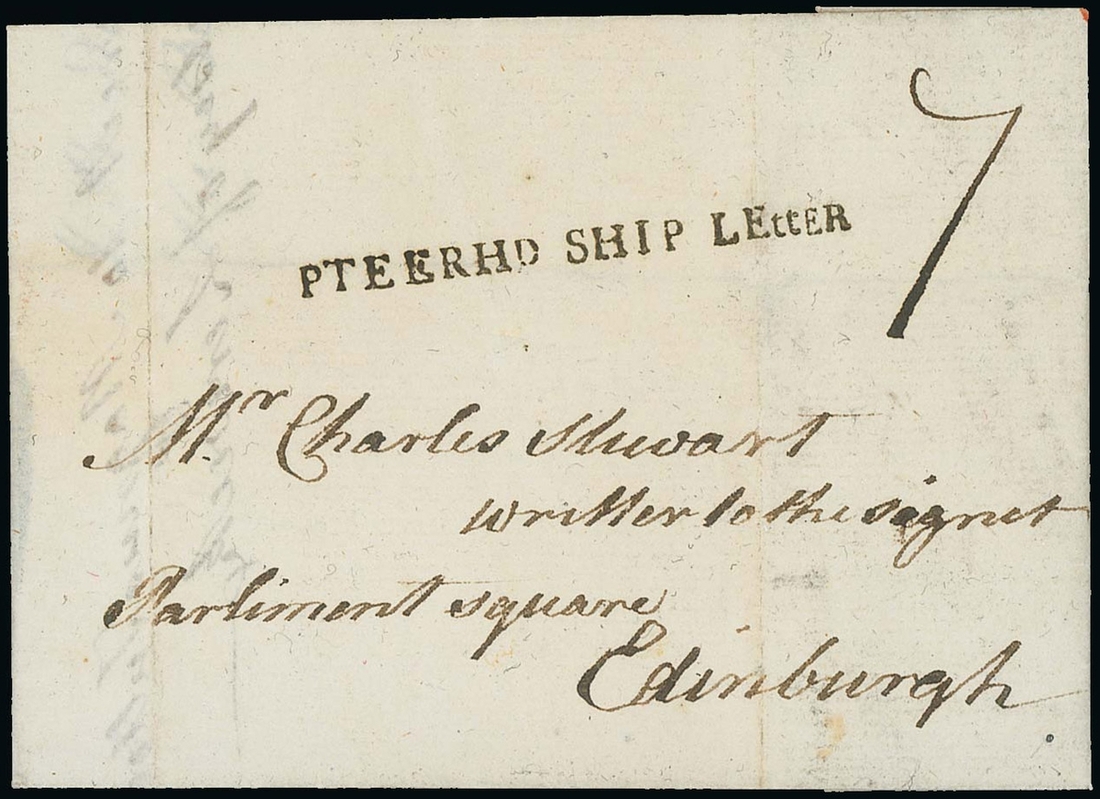 7
PTEERHD SHIP LEttER
Mr. Charles Stuwart
writter to the signet
Parliment square
Edinburgh